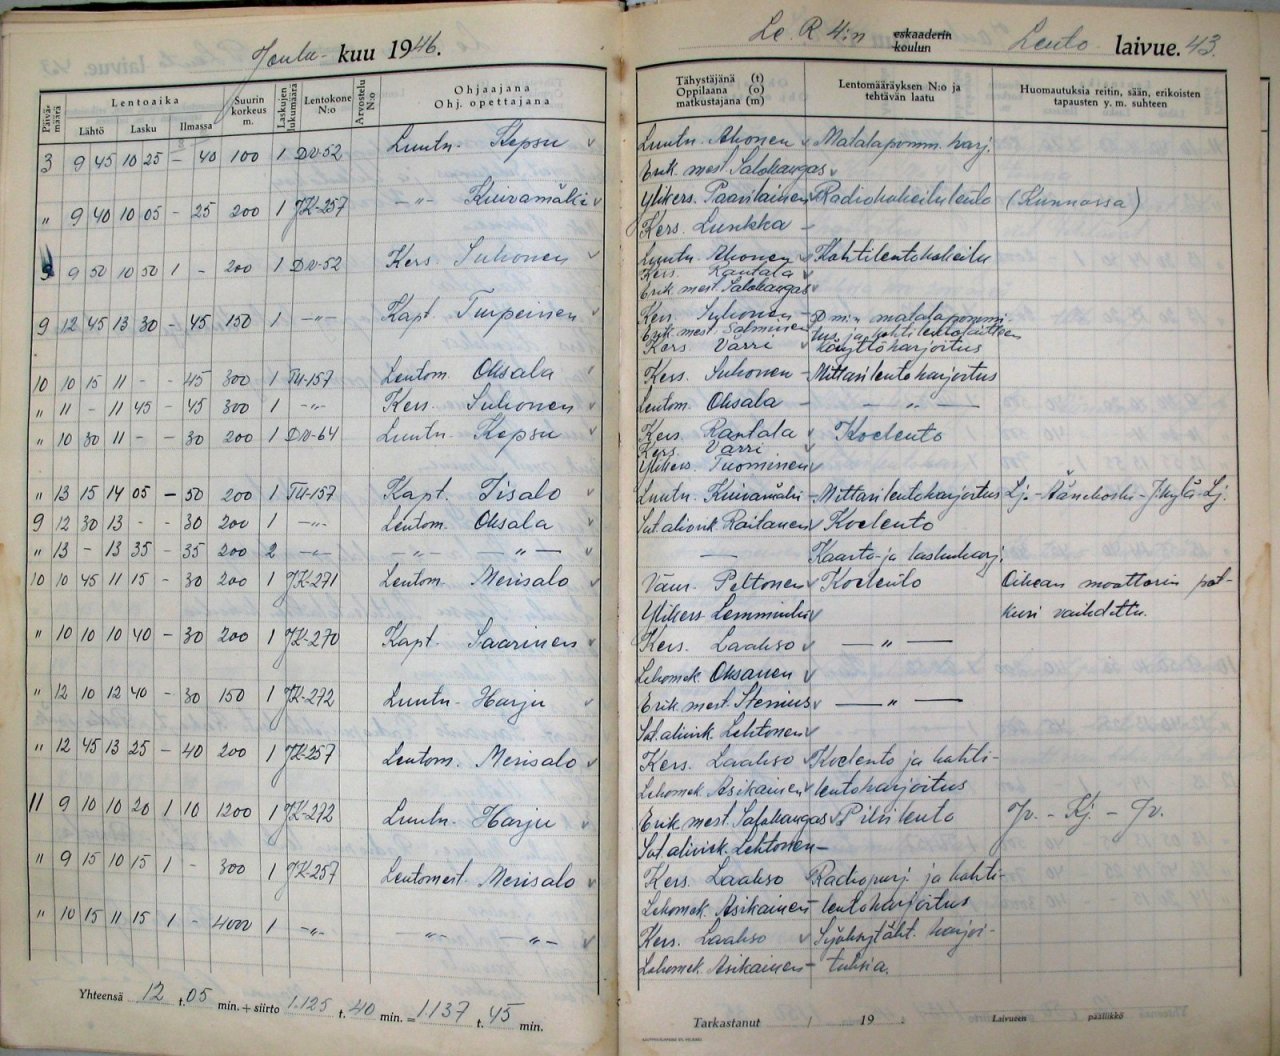 Joulu- kuu 1946.
Päivämäärä
Lentoaika
Lähtö Lasku Ilmassa
Suurin korkeus m.
Laskujen lukumäärä
Lentokone N:o
Arvostelu N:o
Ohjaajana
Ohj. opettajana
3 9 45 10 25 - 40 100 1 DN-52 Luutn. Kepsu v
" 9 40 10 05 - 25 200 1 JK-257 -"- Kuivamäki v
9 50 10 50 1 - 200 1 DN-52 Kers Suhonen v
9 12 45 13 30 - 45 150 1 -"- Kapt. Turpeinen v
10 10 15 11 - - 45 300 1 TU-157 Lentom. Oksala v
" 11 - 11 45 - 45 300 1 -"- Kers. Suhonen v
" 10 30 11 - - 30 200 1 DN-64 Luutn. Kepsu v
" 13 15 14 05 - 50 200 1 TU-157 Kapt. Iisalo v
9 12 30 13 - - 30 200 1 -"- Lentom. Oksala v
" 13 - 13 35 - 35 200 2 -"- -"- -"- v
10 10 45 11 15 - 30 200 1 JK-271 Lentom. Merisalo v
" 10 10 10 40 - 30 200 1 JK-270 Kapt. Saarinen v
" 12 10 12 40 - 30 150 1 JK-272 Luutn. Harju v
" 12 45 13 25 - 40 200 1 JK-257 Lentom. Merisalo v
11 9 10 10 20 1 10 1200 1 JK-272 Luutn. Harju v
" 9 15 10 15 1 - 300 1 JK-257 Lentomest. Merisalo v
" 10 15 11 15 1 - 4000 1 -"- -"- -"- v
Yhteensä 12 t. 05 min. + siirto 1.125 t. 40 min. = 1137 t. 45 min.
Le R 4:n eskaaderin koulun Lento- laivue. 43.
Tähystäjänä (t)
Oppilaana (o)
matkustajana (m)
Lentomääräyksen N:o ja
tehtävän laatu
Huomautuksia reitin, sään, erikoisten
tapausten y. m. suhteen
Luutn. Ahonen v Matalapomm. harj.
Erik. mest. Salokangas v
Ylikers. Paavilainen v Radiokokeilulento (Kunnossa)
Kers. Lunkka -
Luutn. Ahonen v Kohtilentokokeilu
Kers. Rantala v
Erik. mest. Salokangas v
Kers. Suhonen - D m:n matalapommi-
Erik. mest. Salminen v tus ja kohtilentolaitteen
Kers. Värri v käyttöharjoitus
Kers. Suhonen - Mittarilentoharjoitus
Lentom. Oksala - - " -
Kers. Rantala v Koelento
Kers. Värri v
Ylikers. Tuominen v
Luutn. Kuivamäki - Mittarilentoharjoitus Lj. - Äänekoski - Jkylä - Lj.
Sot.alivirk. Raitanen v Koelento
- Kaarto- ja laskuharj.
Vänr. Peltonen v Koelento Oikean moottorin pot-
Ylikers. Lemminki v kuri vaihdettu.
Kers. Laakso v - " -
Lekomek. Oksanen v
Erik. mest. Stenius v - " -
Sot.alivirk. Lehtonen v
Kers. Laakso v Koelento ja kohti-
Lekomek. Asikainen v lentoharjoitus
Erik. mest. Salokangas v Pilvilento Jv. - Kj. - Jv.
Sot.alivirk. Lehtonen -
Kers. Laakso v Radiopurj. ja kohti-
Lekomek. Asikainen - lentoharjoitus
Kers. Laakso v Syöksytäht. harjoi-
Lekomek. Asikainen - tuksia.
Tarkastanut / 19 . Laivueen päällikkö